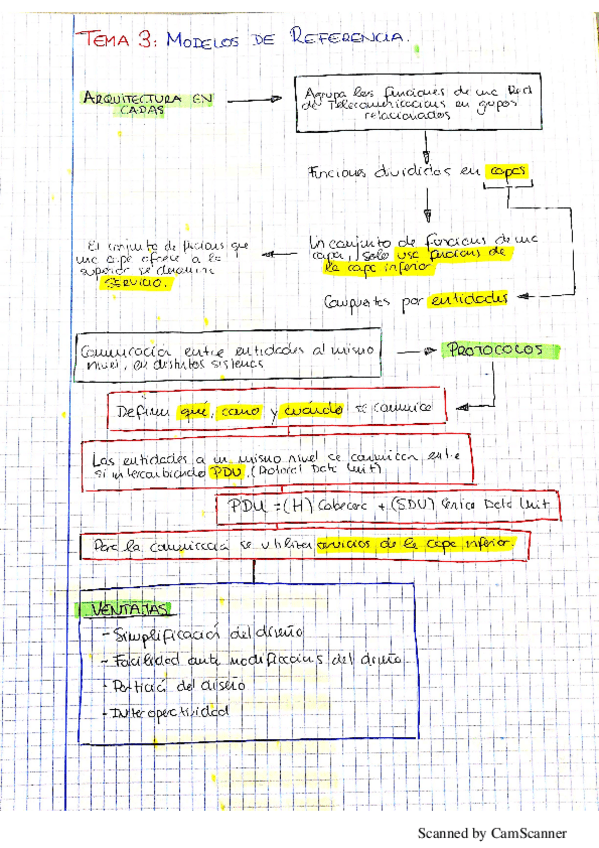 TEMA 3: MODELOS DE REFERENCIA.
ARQUITECTURA EN
CAPAS
Agrupa las funciones de una Red
de Telecomunicacions en grupos
relacionados
Funciones divididas en capas
Un conjunto de funcions de una
capa, solo usa funcions de
la capa inferior
El conjunto de funcions que
una capa ofrece a la
superior se denomina
SERVICIO.
Compuestas por entidades
Comunicación entre entidades al mismo
nivel, en distintos sistemas
PROTOCOLOS
Definen qué, como y cuándo se comunica
Las entidades a un mismo nivel se comunican entre
si intercambiando PDU. (Protocol Data Unit)
PDU = (H) Cabecera + (SDU) Service Data Unit
Para la comunicación se utilizan servicios de la capa inferior.
VENTAJAS
- Simplificación del diseño
- Facilidad ante modificacions del diseño
- Partición del diseño
- Interoperatividad
Scanned by CamScanner